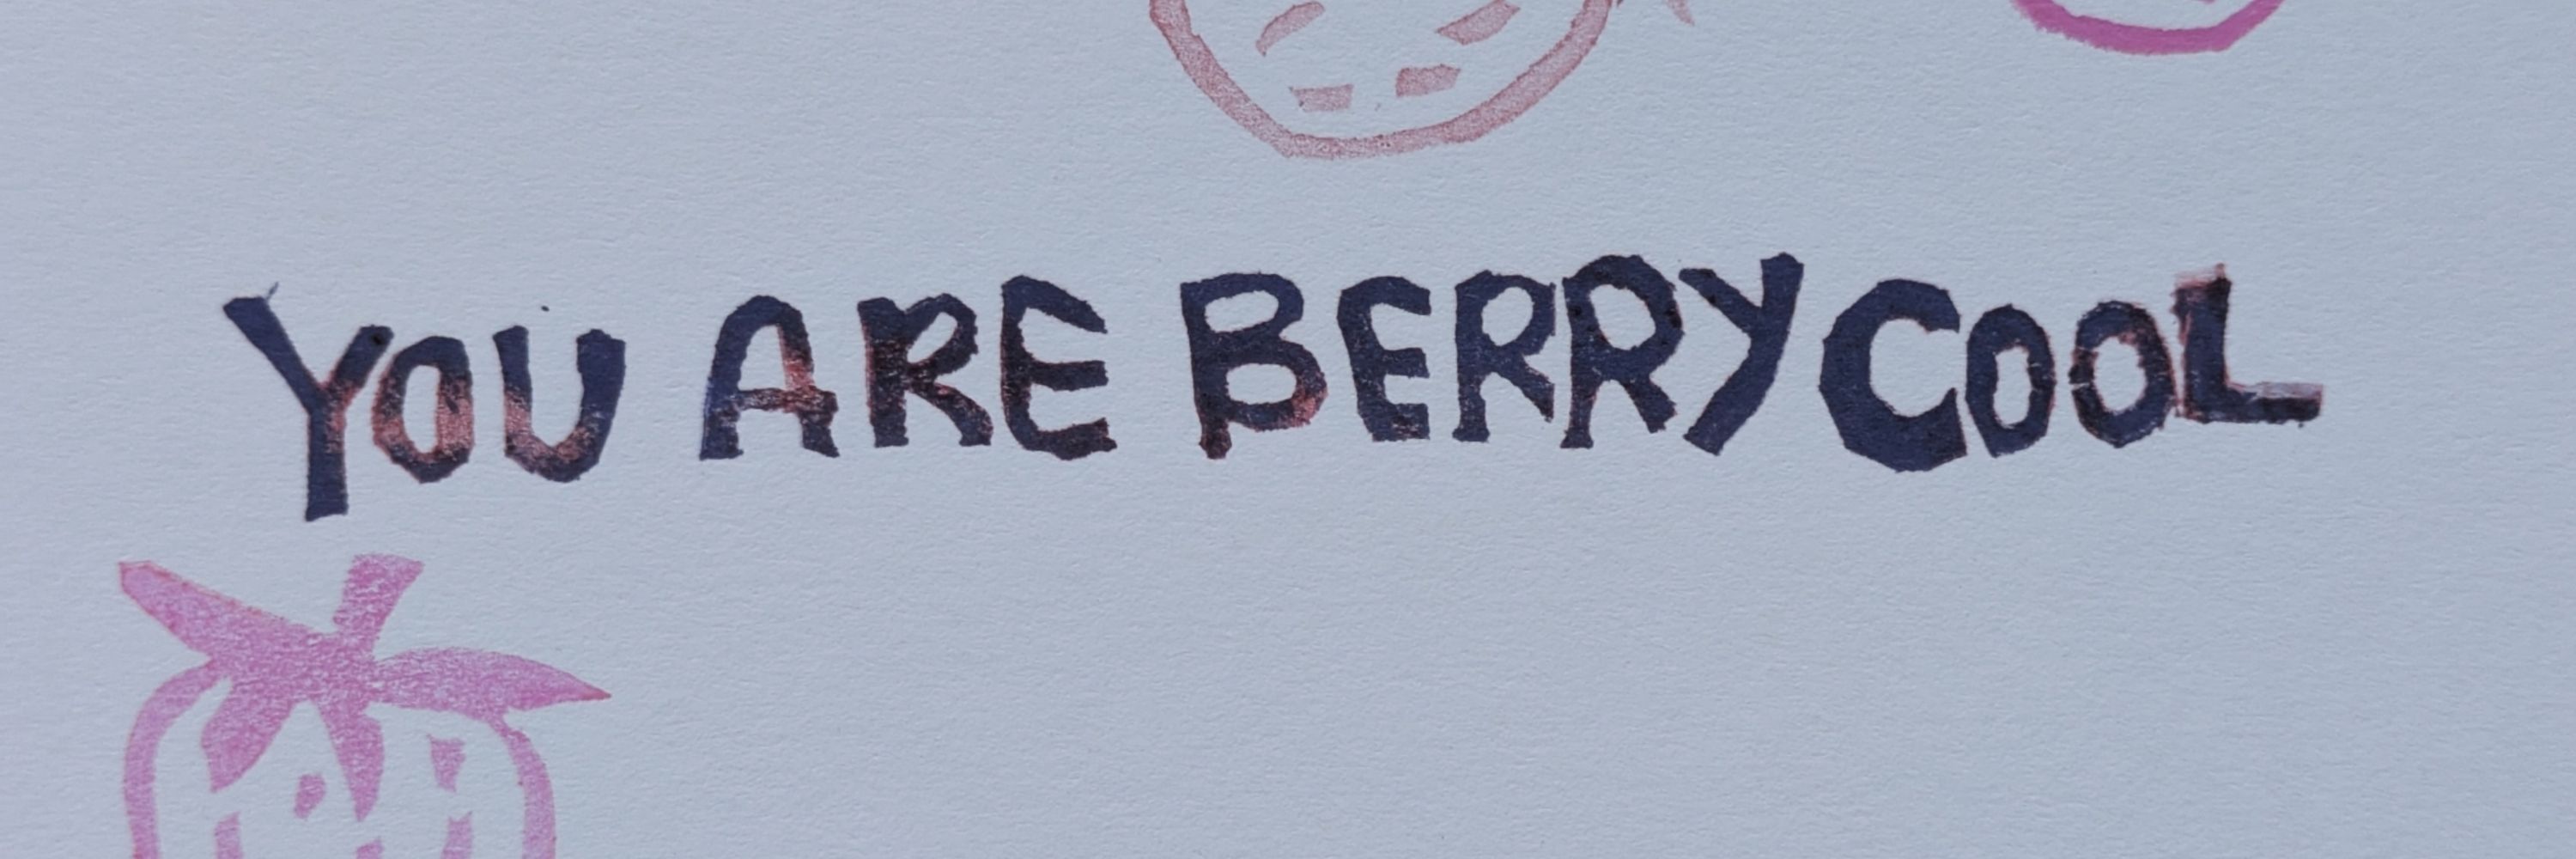 YOU ARE BERRY COOL